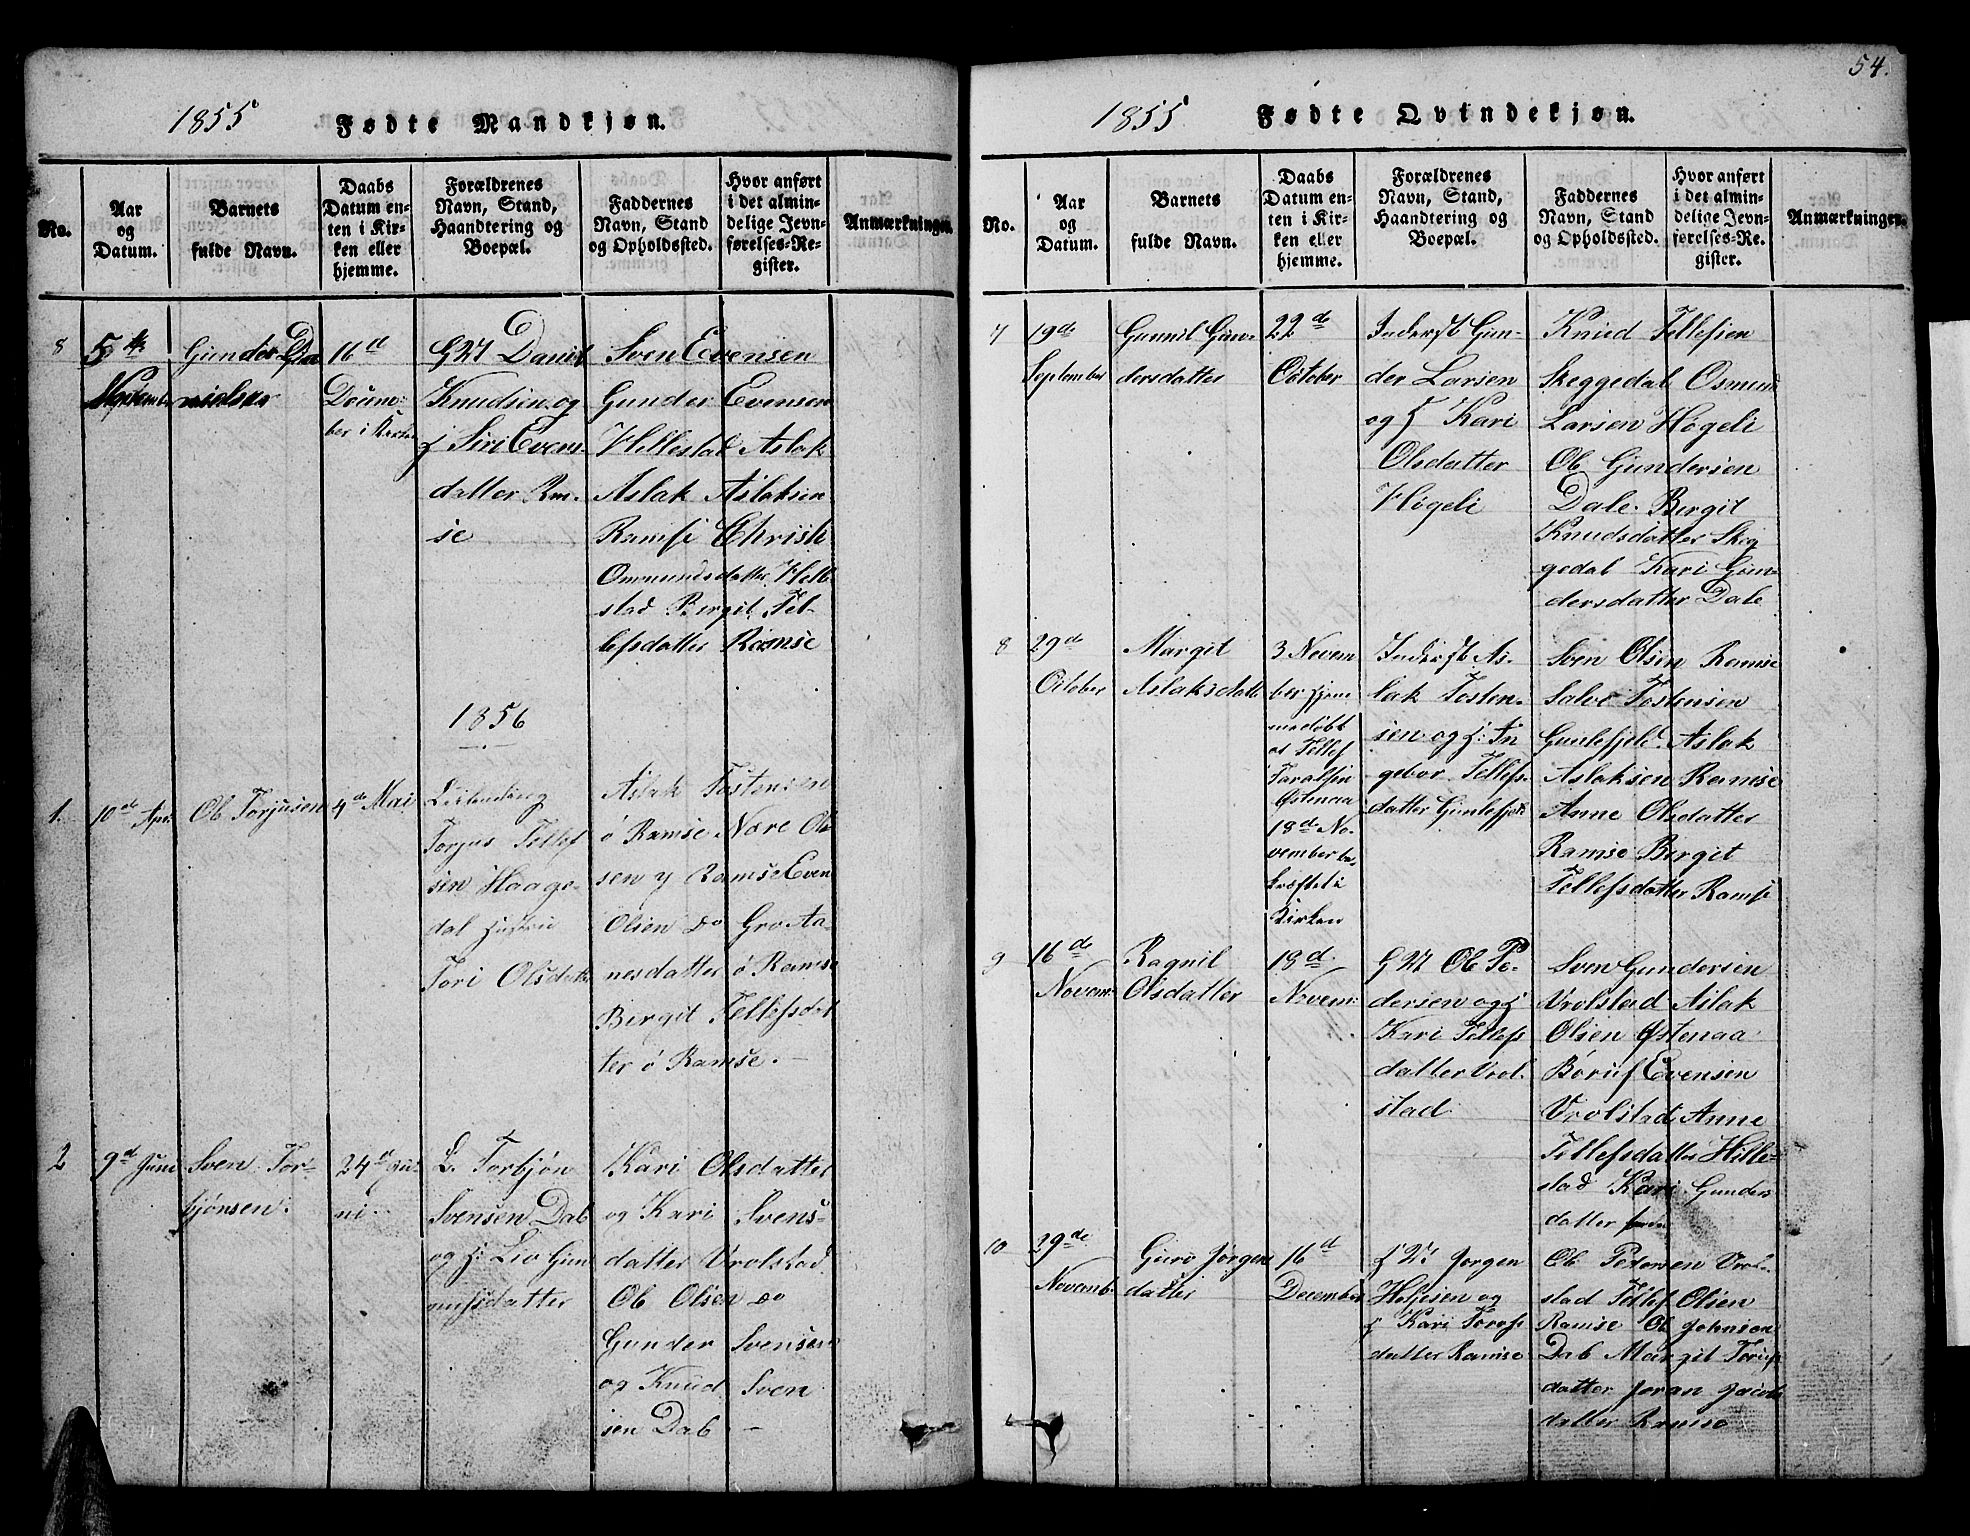 54.
1855 Fødte Mandkjøn.
No.
Aar
og
Datum.
Barnets
fulde Navn.
Daabs
Datum en-
ten i Kir-
ken eller
hjemme.
Forældrenes
Navn, Stand,
Haandtering og
Boepæl.
Faddernes
Navn, Stand
og Opholdssted.
Hvor anført
i det almin-
delige Jevn-
førelses-Re-
gister.
Anmærkninger.
8
5te
Gunder Da
nielsen
16d
Decem-
ber i Kirke
Daniel
Knudsen og
Siri Evens-
datter Ram-
se
Sven Evensen
Gunder Evensen
Hillestad Aslak
Aslak Aslaksen
Ramse
Ommundsdatter Hille
stad Bergit Tel-
lefsdatter Ramse
1856
1.
10de Apr:
Ob Torjusen
4de Mai
Torjus Tellef
sen Haage-
dal
Tori Olsdatter
Aslak Tostensen
ø Ramse Nære Ol-
sen y Ramse Even
Olsen do Gro Aa-
nesdatter ø Ramse
Birgit Tellefsdat
ter ø Ramse.
2
9d Juni
Sven Tor-
bjønsen.
24d Ju-
ni.
L. Torbjøn
Svensen Dal
og H: Liv Gun
nufsdatter
Kari Olsdatter
og Kari Svens-
datter Vrolstad
Ob Olsen do
Gunder Svensen
og Knud Sven
sen Dal
1855 Fødte Qvindekjøn.
No.
Aar
og
Datum.
Barnets
fulde Navn.
Daabs
Datum en-
ten i Kir-
ken eller
hjemme.
Forældrenes
Navn, Stand,
Haandtering og
Boepæl.
Faddernes
Navn, Stand
og Opholdssted.
Hvor anført
i det almin-
delige Jevn-
førelses-Re-
gister.
Anmærkninger.
7
19de
September
Gunnil Gun-
dersdatter
22de
October
Inderst Gun-
der Larsen
og H Kari
Olsdatter
Høgeli
Knud Tellefsen
Skeggedal Osmund
Larsen Høgeli
Ob Gundersen
Dale. Bergit
Knudsdatter Skeg
gedal Kari Gun-
dersdatter Dale
8
29de
October
Margit
Aslaksdatter
3 Novem
ber hjem
medøbt
af Tellef
Taraldsen
Østenaa
18de No-
vember be-
kræftet i
Kirken
Inderst As-
lak Tosten-
sen og H: In
gebor Tellefs
datter
Sven Olsen Ramse
Salve Tostensen
Aslak
Aslaksen Ramse
Anne Olsdatter
Ramse Birgit
Tellefsdatter Ramse
9
16de
Novem:
Ragnil
Olsdatter
18d.
Novem:
Ob Pe-
dersen og H
Kari Tellefs
datter Vrol-
stad
Sven Gundersen
Vrolstad Aslak
Olsen Østenaa
Evensen
Vrolstad Anne
Tellefsdatter Hille-
stad Kari Gunders
datter
10
29de
Novemb:
Guro Jørgens
datter
16d
December
Jørgen
Heljesen og
H Kari
datter Ramse
Ob Pedersen Vrol-
stad Tellef Olsen
Ramse Ob Johnsen
Dal Margit
datter Joran Jacobs
datter Ramse